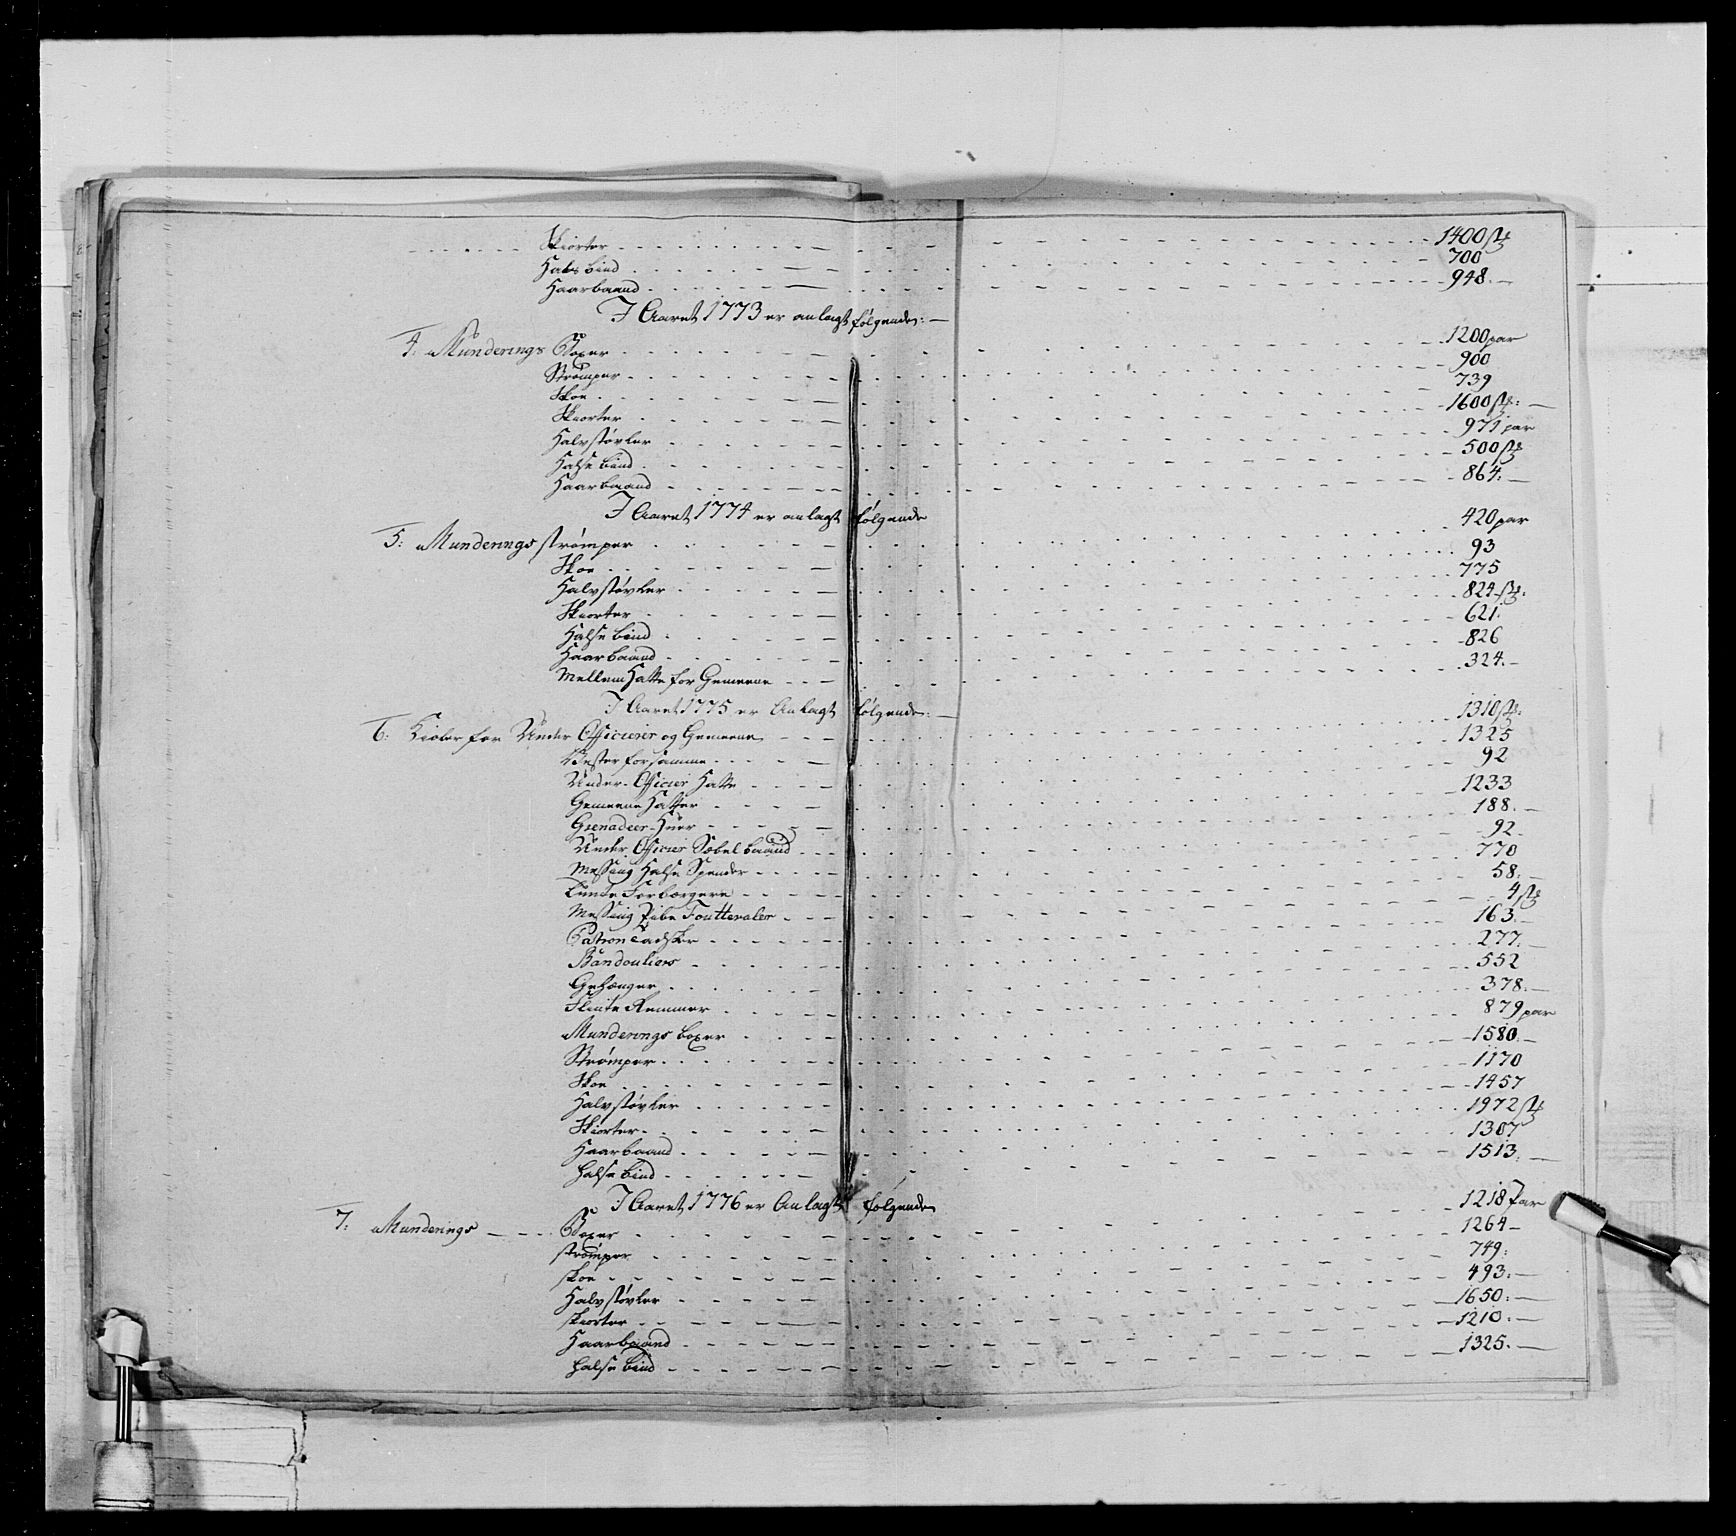 Skiorter 1400 st
Halsbind 700
Haarbaand 948
I Aaret 1773 er anlagt følgende:
4: Munderings Boxer 1200 par
Strømper 900
Skoe 739
Skiorter 1600 st:
Halvstøvler 971 par
Halsebind 500 st
Haarbaand 864:
I Aaret 1774 er anlagt følgende
5: Munderings strømper 420 par
Skoe 93
Halvstøvler 775
Skiorter 824 st:
Halsebind 621:
Haarbaand 826
Mellem Hatte for Gemeene 324.
I Aaret 1775 er Anlagt følgende:
6: Kioler for Under Officierer og Gemeene 1310 st:
Vester for samme 1325
Under-Officier Hatte 92
Gemeene Hatter 1233
Grenadeer-Huer 188.
Under Officier Sabel baand 92
Messing Halse Spender 770
Lunte Forbærgere 58:
Messing Pibe Foutteraler 4 st
Patron Tadsker 163.
Bandouliers 277.
Gehænger 552
Flinte Remmer 378.
Munderings boxer 879 par
Strømper 1580
Skoe 1170
Halvstøvler 1457
Skiorter 1972 st
Haarbaand 1307
Halsebind 1513.
I Aaret 1776 er Anlagt følgende
7: Munderings Boxer 1218 Par
strømper 1264
skoe 749:
Halvstøvler 493:
skiorter 1650:
Haarbaand 1210:
Halsebind 1325.